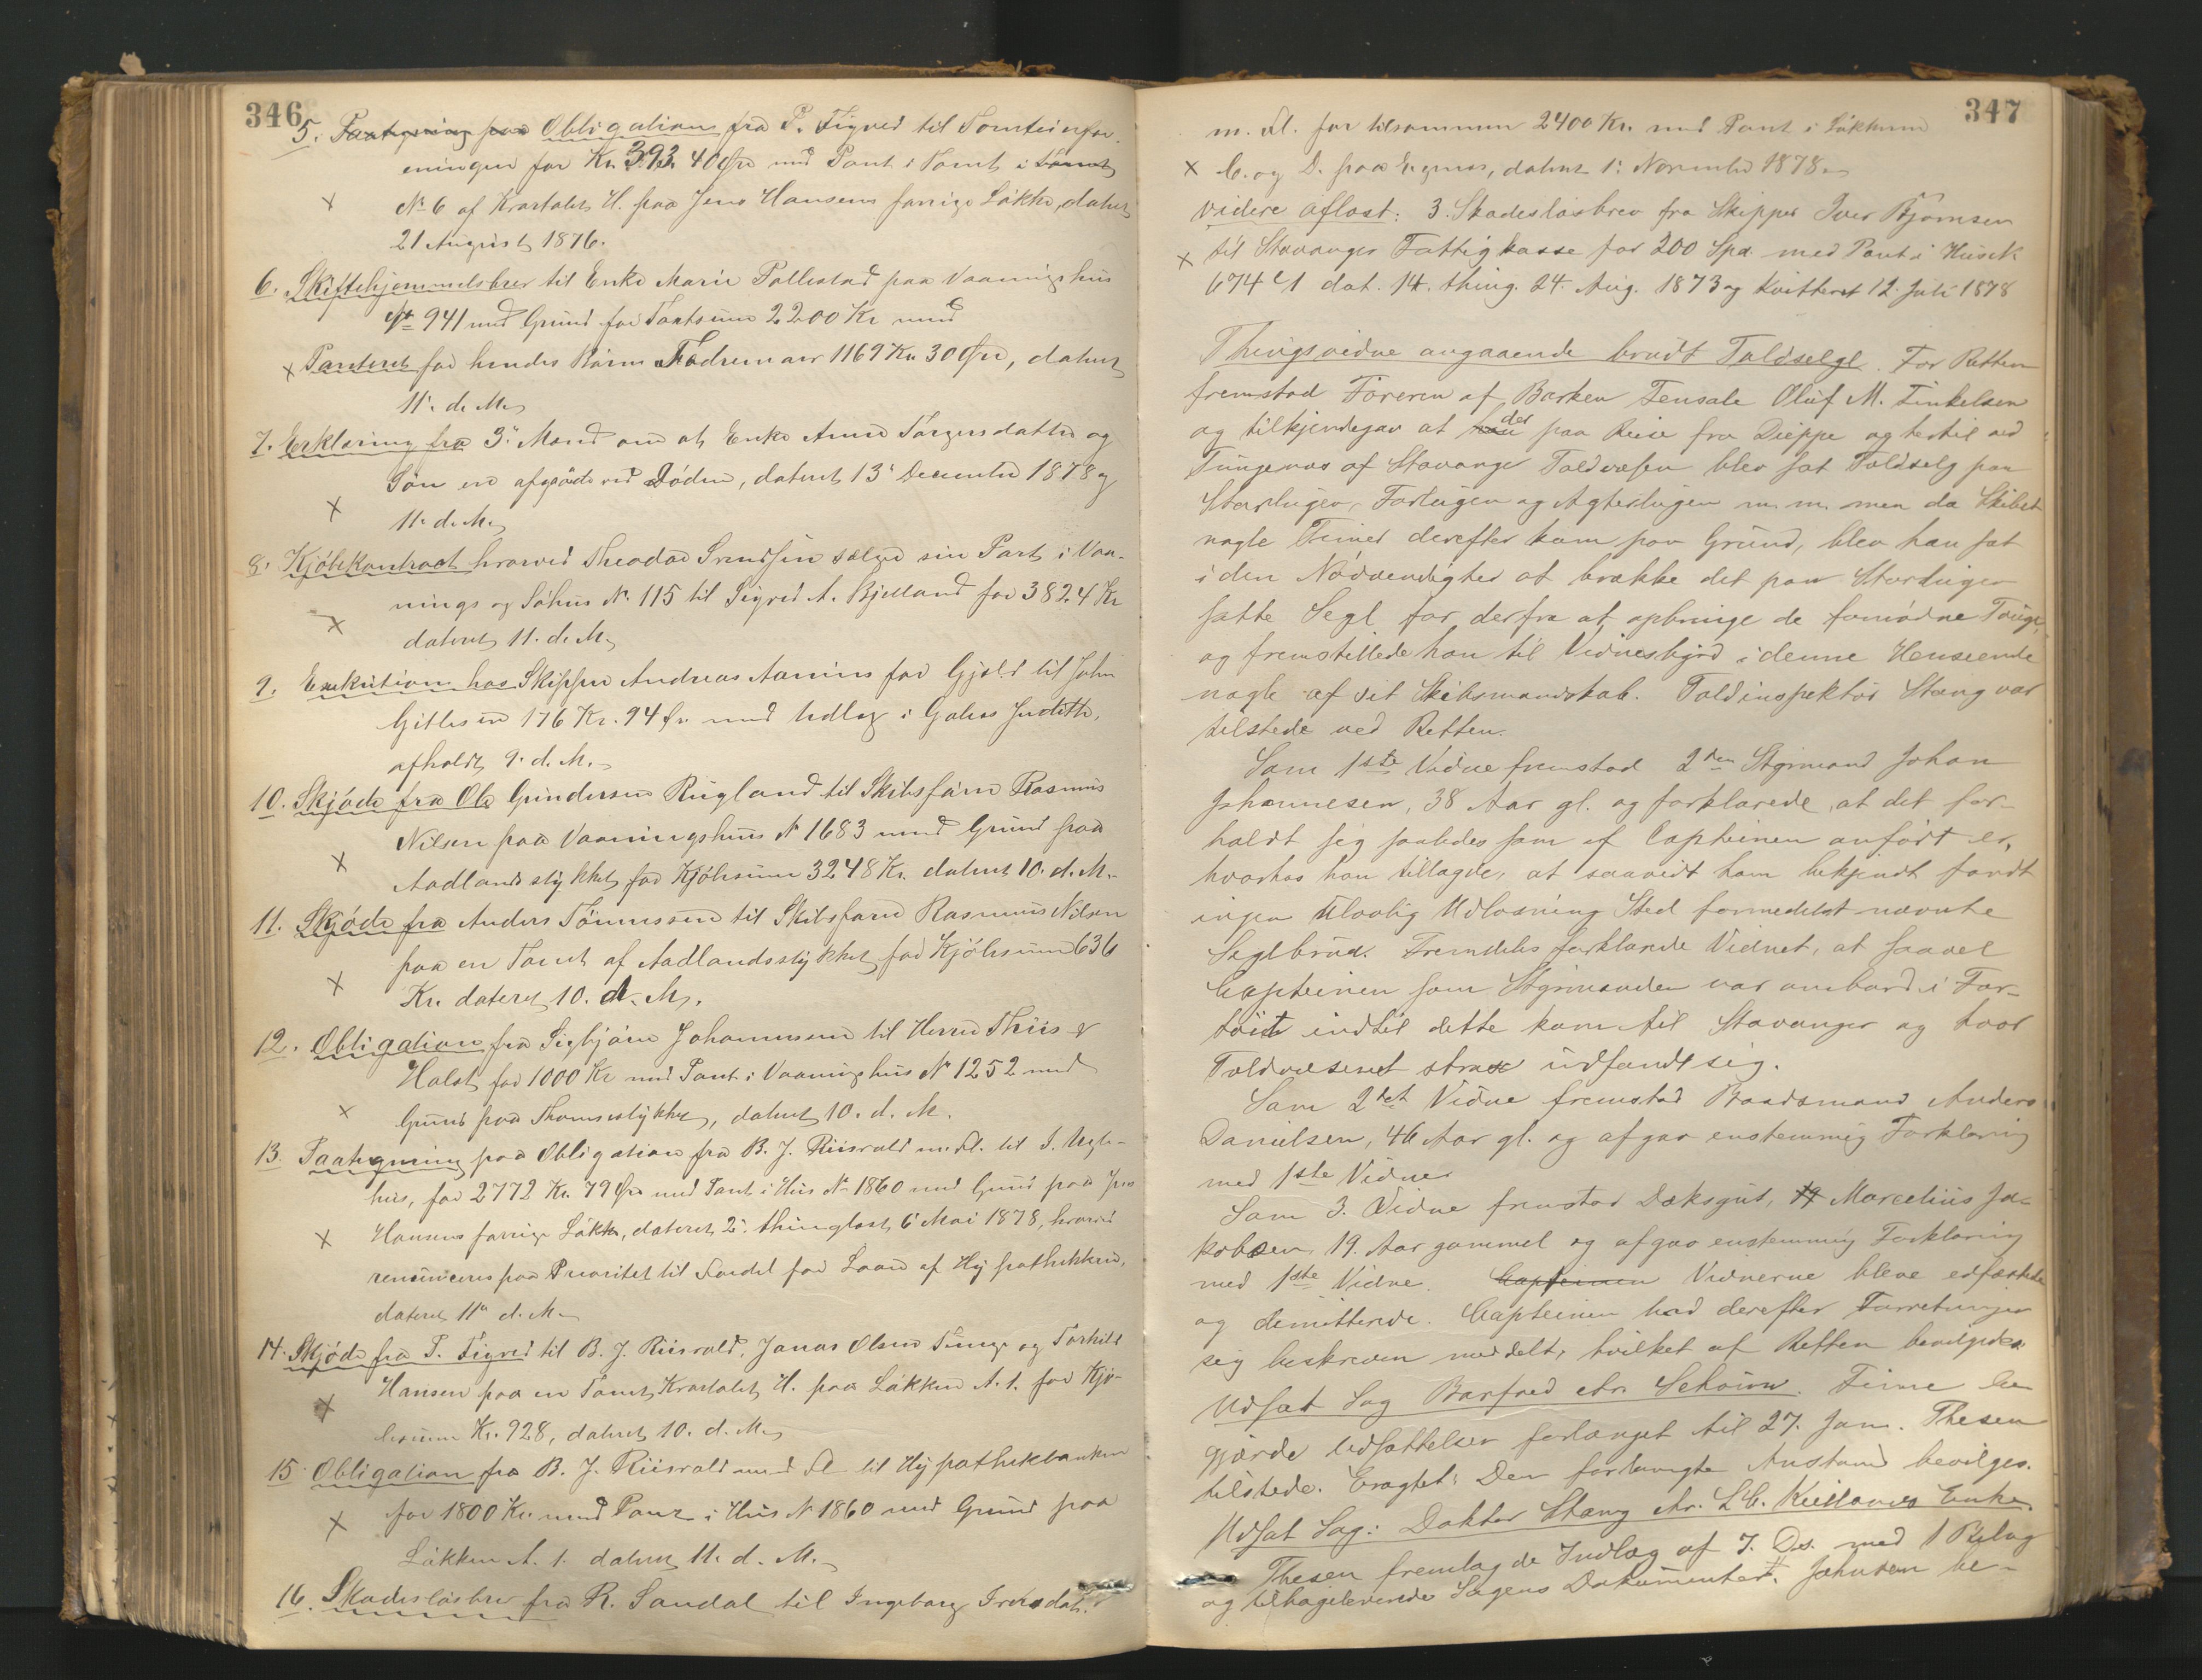 346
5. Paategning paa Obligation fra P. Figved til Tomteinfor-
eningen for Kr. 393. 40 Øre med Pant i Tomt i Tomt
x No 6 af Kvartalet H. paa Jens Hansens forrige Løkke, dateret
21 August 1876.
6. Skiftehjemmelsbrev til Enke Marie Pollestad paa Vaaningshus
No 941 med Grund for Taxtsum 2200 Kr med
x Panteret for hendes Børns Fædrenearv 1169 Kr. 30 Øre, dateret
11. d. M.
7. Erklæring fra 3 Mænd om at Enke Anne Torgersdatter og
Søn ere afgaaede ved Døden, dateret 13 December 1878 og
x 11. d. M.
8. Kjøbekontract hvorved Theodor Svendsen sælger sin Part i Vaa-
nings og Søhus No 115 til Sigrid A. Bjelland for 3824 Kr
x dateret 11. d. M.
9. Exekution hos Skipper Andreas Aanins for Gjæld til John
Gitlesen 176 Kr. 94 Ør. med Udlæg i Galeas Judithe,
afholdt 9. d. M.
10. Skjøde fra Ole Gundersen Rugland til Skibsfører Rasmus
Nilsen paa Vaaningshus No 1683 med Grund paa
x Aadlandsstykket for Kjøbesum 3248 Kr. dateret 10. d. M.
11. Skjøde fra Anders Tønnessen til Skibsfører Rasmus Nilsen
paa en Tomt af Aadlandsstykket for Kjøbesum 636
x Kr. dateret 10. d. M.
12. Obligation fra Sigbjørn Johannessen til Herrer Thiis &
Holst for 1000 Kr med Pant i Vaaningshus No 1252 med
x Grund paa Thomsestykket, dateret 10. d. M.
13. Paategning paa Obligation fra B. J. Riisvold m. Fl. til S. Ugle-
hus, for 2772 Kr. 79 Øre med Pant i Hus No 1860 med Grund paa Jens
x Hansens forrige Løkke, dateret 2. thinglæst 6 Mai 1878, hvorved
renunceres paa Prioritet til Fordel for Laan af Hypothekbken,
dateret 11. d. M.
14. Skjøde fra P. Figved til B. J. Riisvold, Jonas Olsen Tunge og Torkild
x Hansen paa en Tomt, Kvartalet H. paa Løkken A. 1. for Kjø-
besum Kr. 928, dateret 10. d. M.
15. Obligation fra B. J. Riisvold med Fl til Hypothekbanken
x for 1800 Kr. med Pant i Hus No 1860 med Grund paa
Løkken A. 1. dateret 11. d. M.
16. Skadesløsbrev fra R. Sandal til Ingeborg Iversdatr.
347
m. Fl. for tilsammen 2400 Kr. med Pant i Løkkerne
x C. og D. paa Egenes, dateret 1. November 1878.
videre aflæst: 3. Skadesløsbrev fra Skipper Iver Bjørnsen
x til Stavanger Fattigkasse for 200 Spd. med Pant i Hus N
674 C 1 dat. 14. thing. 24. Aug. 1873 og kvitteret 12. Juli 1878
Thingsvidne angaaende brudt Toldsegl. For Retten
fremstod Føreren af Barken Fensale Oluf M. Finkelsen
og tilkjendegav at han der paa Reise fra Dieppe og hertil ved
Tungenæs af Stavanger Toldvæsen blev sat Toldselg paa
Storlugen, Forlugen og Agterlugen m. m. men da Skibet
nogle Timer derefter kom paa Grund, blev han sat
i den Nødvendighed at brække det paa Storlugen
satte Segl for derfra at opbringe de fornødne Touge,
og fremstillede han til Vidnesbyrd i denne Henseende
nogle af sit Skibsmandskab. Toldinspektør Stang var
tilstede ved Retten.
Som 1ste Vidne fremstod 2den Styrmand Johan
Johannesen, 38 Aar gl. og forklarede, at det for-
holdt sig saaledes som af Capteinen anført er,
hvorhos han tillagde, at saavidt ham bekjendt fandt
ingen ulovlig Udlosning Sted formedelst nævnte
Seglbrud. Fremdeles forklarede Vidnet, at saavel
Capteinen som Styrmanden var ombord i Far-
tøiet indtil dette kom til Stavanger og hvor
Toldvæsenet strax indfandt sig.
Som 2det Vidne fremstod Baadsmand Anders
Danielsen, 46 Aar gl. og afgav enstemmig Forklaring
med 1ste Vidne
Som 3. Vidne fremstod Dæksgut, 19 Marcelius Ja-
kobsen, 19. Aar gammel og afgav enstemmig Forklaring
med 1ste Vidne. Capteinen Vidnerne bleve edfæstede
og demitterede. Capteinen bad derefter Forretningen
sig beskreven meddelt, hvilket af Retten bevilgedes.
Udsat Sag Barfred ctr. Schouw. Feine be-
gjærde Udsættelsen forlænget til 27. Jan. Thesen
tilstede. Eragtet: Den forlangte Anstand bevilges.
Udsat Sag: Doktor Stang ctr. L C. Kiellands Enke.
Thesen fremlagde Indlæg af 7. Ds. med 1 Bilag
og tilbageleverede Sagens Dokumenter. Johnsen be-